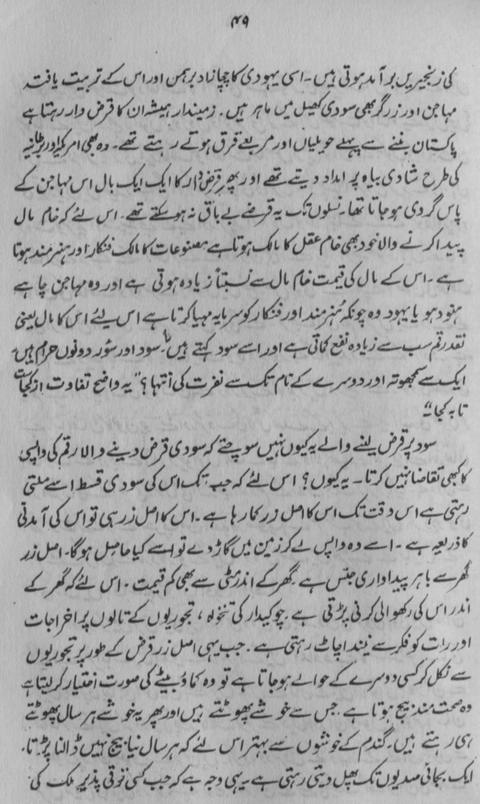 ۴۹
کی زنجیریں برآمد ہوتی ہیں۔ اسی یہودی کا چچا زاد برہمن اور اس کے تربیت یافتہ
مہاجن اور زرگر بھی سودی کھیل میں ماہر ہیں۔ زمیندار ہمیشہ ان کا قرض دار رہتا ہے
پاکستان بننے سے پہلے حویلیاں اور مربعے قرق ہوتے رہتے تھے۔ وہ بھی امریکہ اور برطانیہ
کی طرح شادی بیاہ پر امداد دیتے تھے اور پھر قرض دار کا ایک ایک بال اس مہاجن کے
پاس گروی ہو جاتا تھا۔ نسلوں تک یہ قرضے بے باق نہ ہو سکتے تھے۔ اس لئے کہ خام مال
پیدا کرنے والا خود بھی خام عقل کا مالک ہوتا ہے مصنوعات کا مالک فنکار اور ہنرمند ہوتا
ہے۔ اس کے مال کی قیمت خام مال سے نسبتاً زیادہ ہوتی ہے اور وہ مہاجن چاہے
ہنود ہو یا یہود وہ چونکہ ہنرمند اور فنکار کو سرمایہ مہیا کرتا ہے اس لئے اس کا مال یعنی
نقد رقم سب سے زیادہ نفع کماتی ہے اور اسے سود کہتے ہیں۔ سود اور سؤر دونوں حرام ہیں۔
ایک سے سمجھوتہ اور دوسرے کے نام تک سے نفرت کی انتہا؟ "یہ واضح تفاوت از کجا است
تا بہ کجا"
سود پر قرض لینے والے یہ کیوں نہیں سوچتے کہ سودی قرض دینے والا رقم کی واپسی
کا کبھی تقاضا نہیں کرتا۔ یہ کیوں؟ اس لئے کہ جب تک اس کی سودی قسط اسے ملتی
رہتی ہے اس وقت تک اس کا اصل زر کما رہا ہے۔ اس کا اصل زر ہی تو اس کی آمدنی
کا ذریعہ ہے۔ اسے وہ واپس لے کر زمین میں گاڑ دے تو اسے کیا حاصل ہوگا۔ اصل زر
گھر سے باہر پیداواری جنس ہے۔ گھر کے اندر مٹی سے بھی کم قیمت۔ اس لئے کہ گھر کے
اندر اس کی رکھوالی کرنی پڑتی ہے۔ چوکیدار کی تنخواہ، تجوریوں کے تالوں پر اخراجات
اور رات کو فکر سے نیند اچاٹ رہتی ہے۔ جب یہی اصل زر قرض کے طور پر تجوریوں
سے نکل کر کسی دوسرے کے حوالے ہو جاتا ہے تو وہ کماؤ بیٹے کی صورت اختیار کر لیتا ہے
وہ صحت مند بیج ہوتا ہے۔ جس سے خوشے پھوٹتے ہیں اور پھر یہ خوشے ہر سال پھوٹتے
ہی رہتے ہیں۔ گندم کے خوشوں سے بہتر اس لئے کہ ہر سال نیا بیج نہیں ڈالنا پڑتا۔
ایک بجائی صدیوں تک پھل دیتی رہتی ہے یہی وجہ ہے کہ جب کسی ترقی پذیر ملک کی